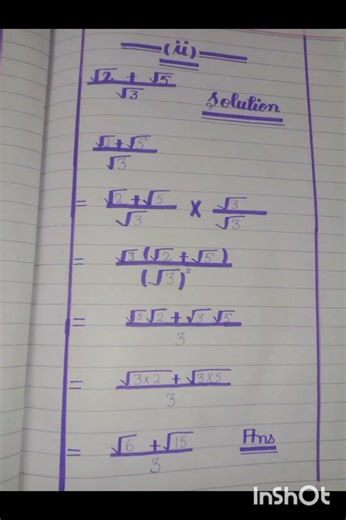 (ii)
√2 + √5 / √3
Solution
√2 + √5 / √3
= √2 + √5 / √3 × √3 / √3
= √3 (√2 + √5) / (√3)²
= √3 √2 + √3 √5 / 3
= √3×2 + √3×5 / 3
= √6 + √15 / 3 Ans
InShOt